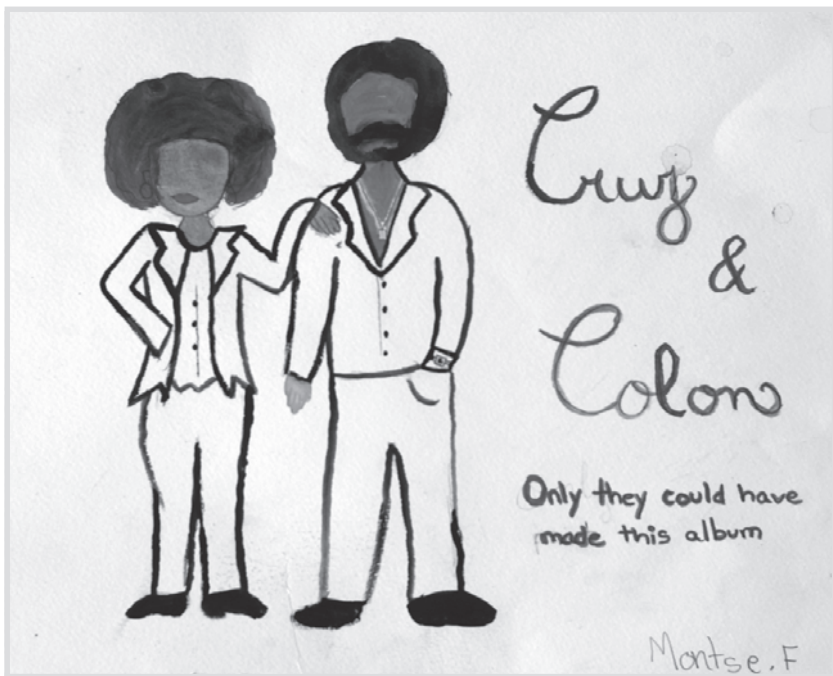 Cruz
&
Colon
Only they could have
made this album
Montse.F